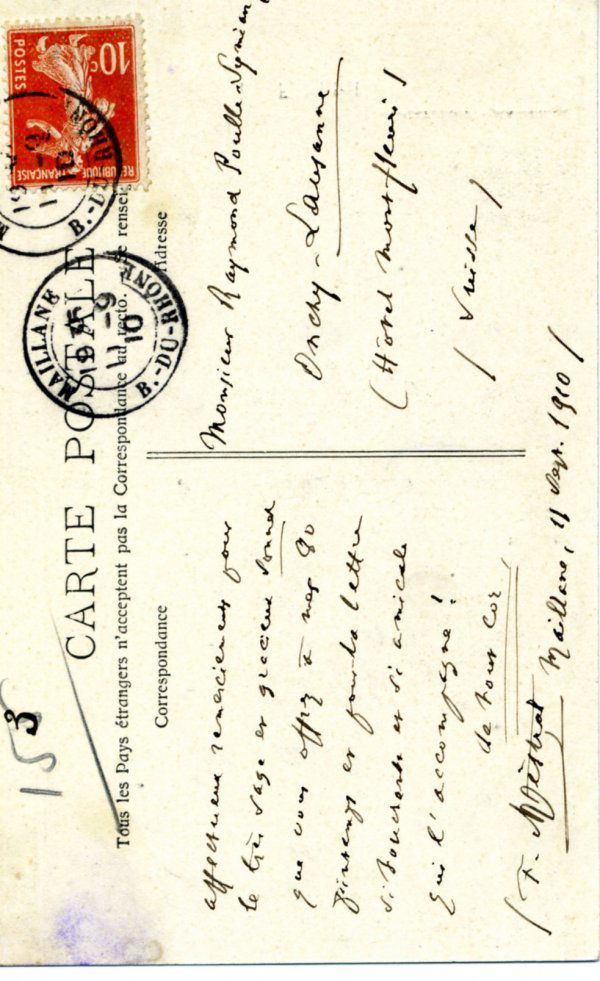 CARTE POSTALE
Tous les Pays étrangers n'acceptent pas la Correspondance au recto. Se rensei
Correspondance
affectueux remerciements pour
le très sage et gracieux sonnet
que vous offrez à mes 80
printemps et pour la lettre
si touchante et si amicale
qui l'accompagne!
de tout cor,
F. Mistral
Maillane, 11 Sept. 1910
Adresse
Monsieur Raymond Poulle-Symian
Ouchy-Lausanne
(Hôtel Montfleuri)
(Suisse)
10c
POSTES
REPUBLIQUE FRANÇAISE
MAILLANE
11 -9
10
B.-DU-RHÔNE
B.-DU-RHÔNE